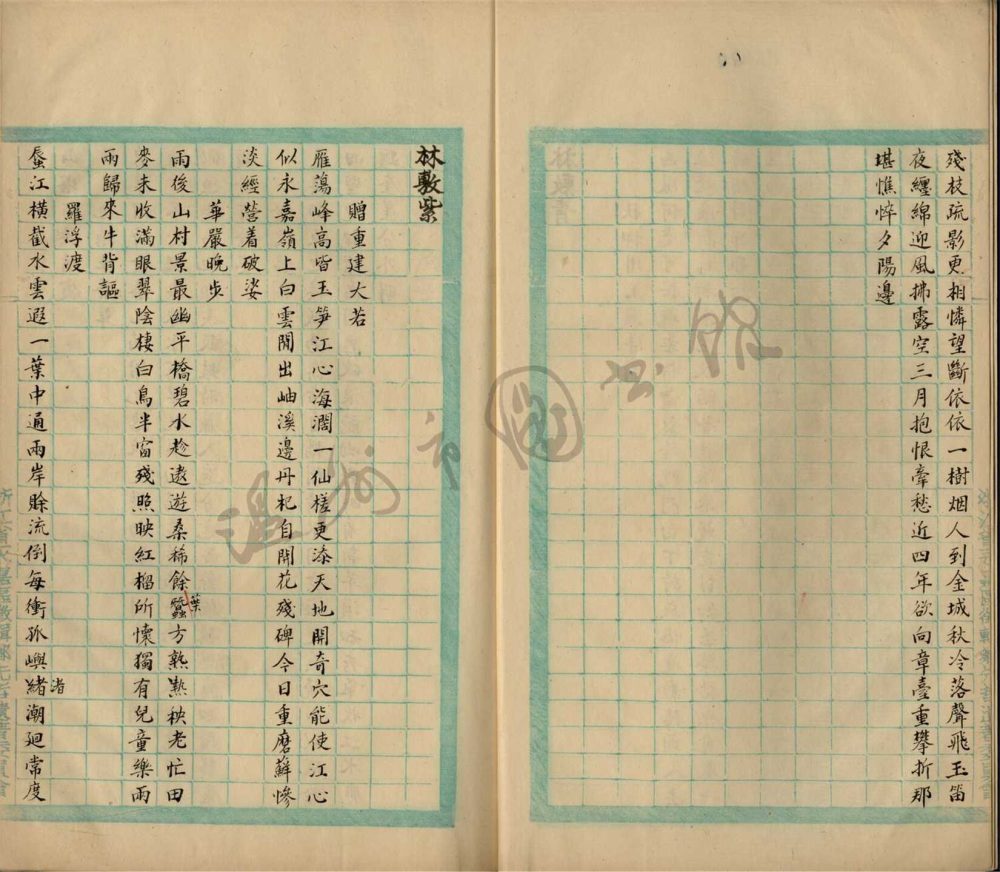 殘枝疏影更相憐望斷依依一樹烟人到金城秋冷落聲飛玉笛
夜纏綿迎風拂露空三月抱恨牽愁近四年欲向章臺重攀折那
堪憔悴夕陽邊
林敷紫
贈重建大若
雁蕩峰高皆玉笋江心海濶一仙槎更添天地開奇穴能使江心
似永嘉嶺上白雲閒出岫溪邊丹杞自開花殘碑今日重磨蘚慘
淡經營着破娑
華嚴晚步
雨後山村景最幽平橋碧水趁遨遊桑稀餘葉蠶方熟熟秧老忙田
麥未收滿眼翠陰棲白鳥半窗殘照映紅榴所懷獨有兒童樂雨
雨歸來牛背謳
羅浮渡
蜃江橫截水雲遐一葉中通兩岸賖流倒每衝孤嶼緒渚潮廻常度
溫州市圖書館